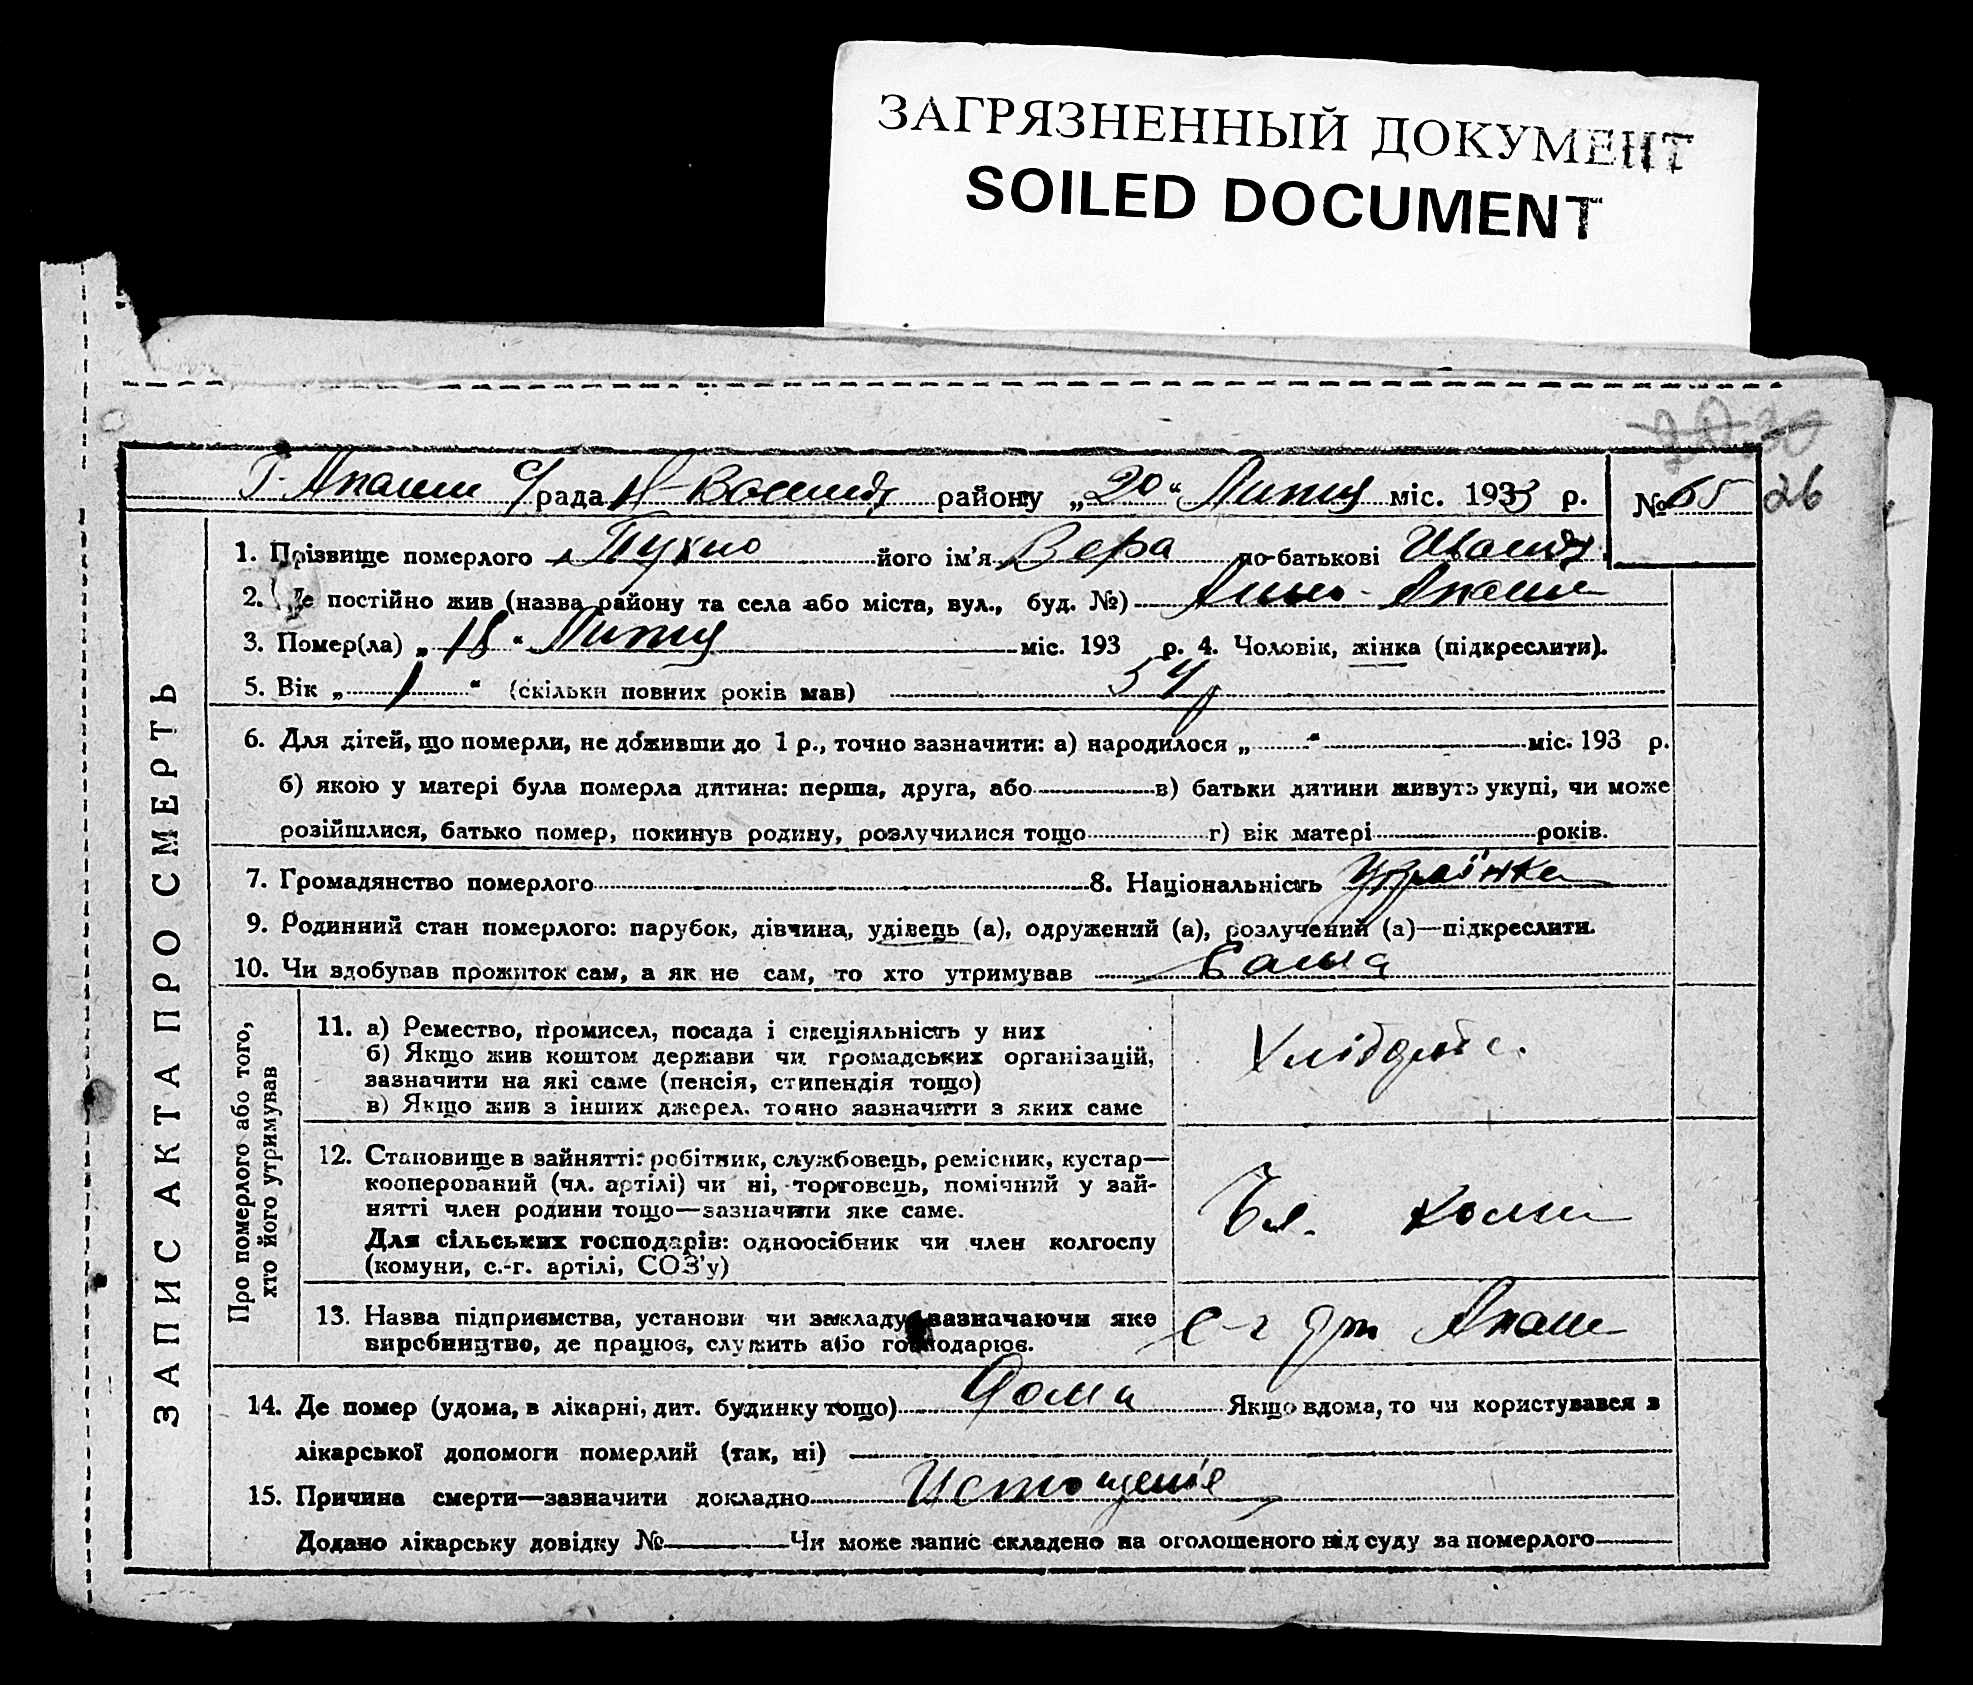 ЗАГРЯЗНЕННЫЙ ДОКУМЕНТ
SOILED DOCUMENT
26
с/рада району „20“ Липця міс. 1933 р. № 65
ЗАПИС АКТА ПРО СМЕРТЬ
1. Прізвище померлого його ім'я Вера по-батькові
2. Де постійно жив (назва району та села або міста, вул., буд. №)
3. Помер(ла) „18“ Липця міс. 193 р. 4. Чоловік, жінка (підкреслити).
5. Вік „ “ (скільки повних років мав) 54
6. Для дітей, що померли, не доживши до 1 р., точно зазначити: а) народилося „ “ міс. 193 р.
б) якою у матері була померла дитина: перша, друга, або в) батьки дитини живуть укупі, чи може
розійшлися, батько помер, покинув родину, розлучилися тощо г) вік матері років.
7. Громадянство померлого 8. Національність Українка
9. Родинний стан померлого: парубок, дівчина, удівець (а), одружений (а), розлучений (а)—підкреслити.
10. Чи здобував прожиток сам, а як не сам, то хто утримував Сама
Про померлого або того,
хто його утримував
11. а) Ремество, промисел, посада і спеціяльність у них
б) Якщо жив коштом держави чи громадських організацій,
зазначити на які саме (пенсія, стипендія тощо)
в) Якщо жив з інших джерел, точно зазначити з яких саме
12. Становище в зайнятті: робітник, службовець, ремісник, кустар—
кооперований (чл. артілі) чи ні, торговець, помічний у зай-
нятті член родини тощо—зазначити яке саме.
Для сільських господарів: одноосібник чи член колгоспу
(комуни, с.-г. артілі, СОЗ'у)
Чл.
13. Назва підприємства, установи чи закладу зазначаючи яке
виробництво, де працює, служить або господарює.
с-г
14. Де помер (удома, в лікарні, дит. будинку тощо) Дома Якщо вдома, то чи користувався з
лікарської допомоги померлий (так, ні)
15. Причина смерти—зазначити докладно Истощеніе
Додано лікарську довідку № Чи може запис складено на оголошеного від суду за померлого